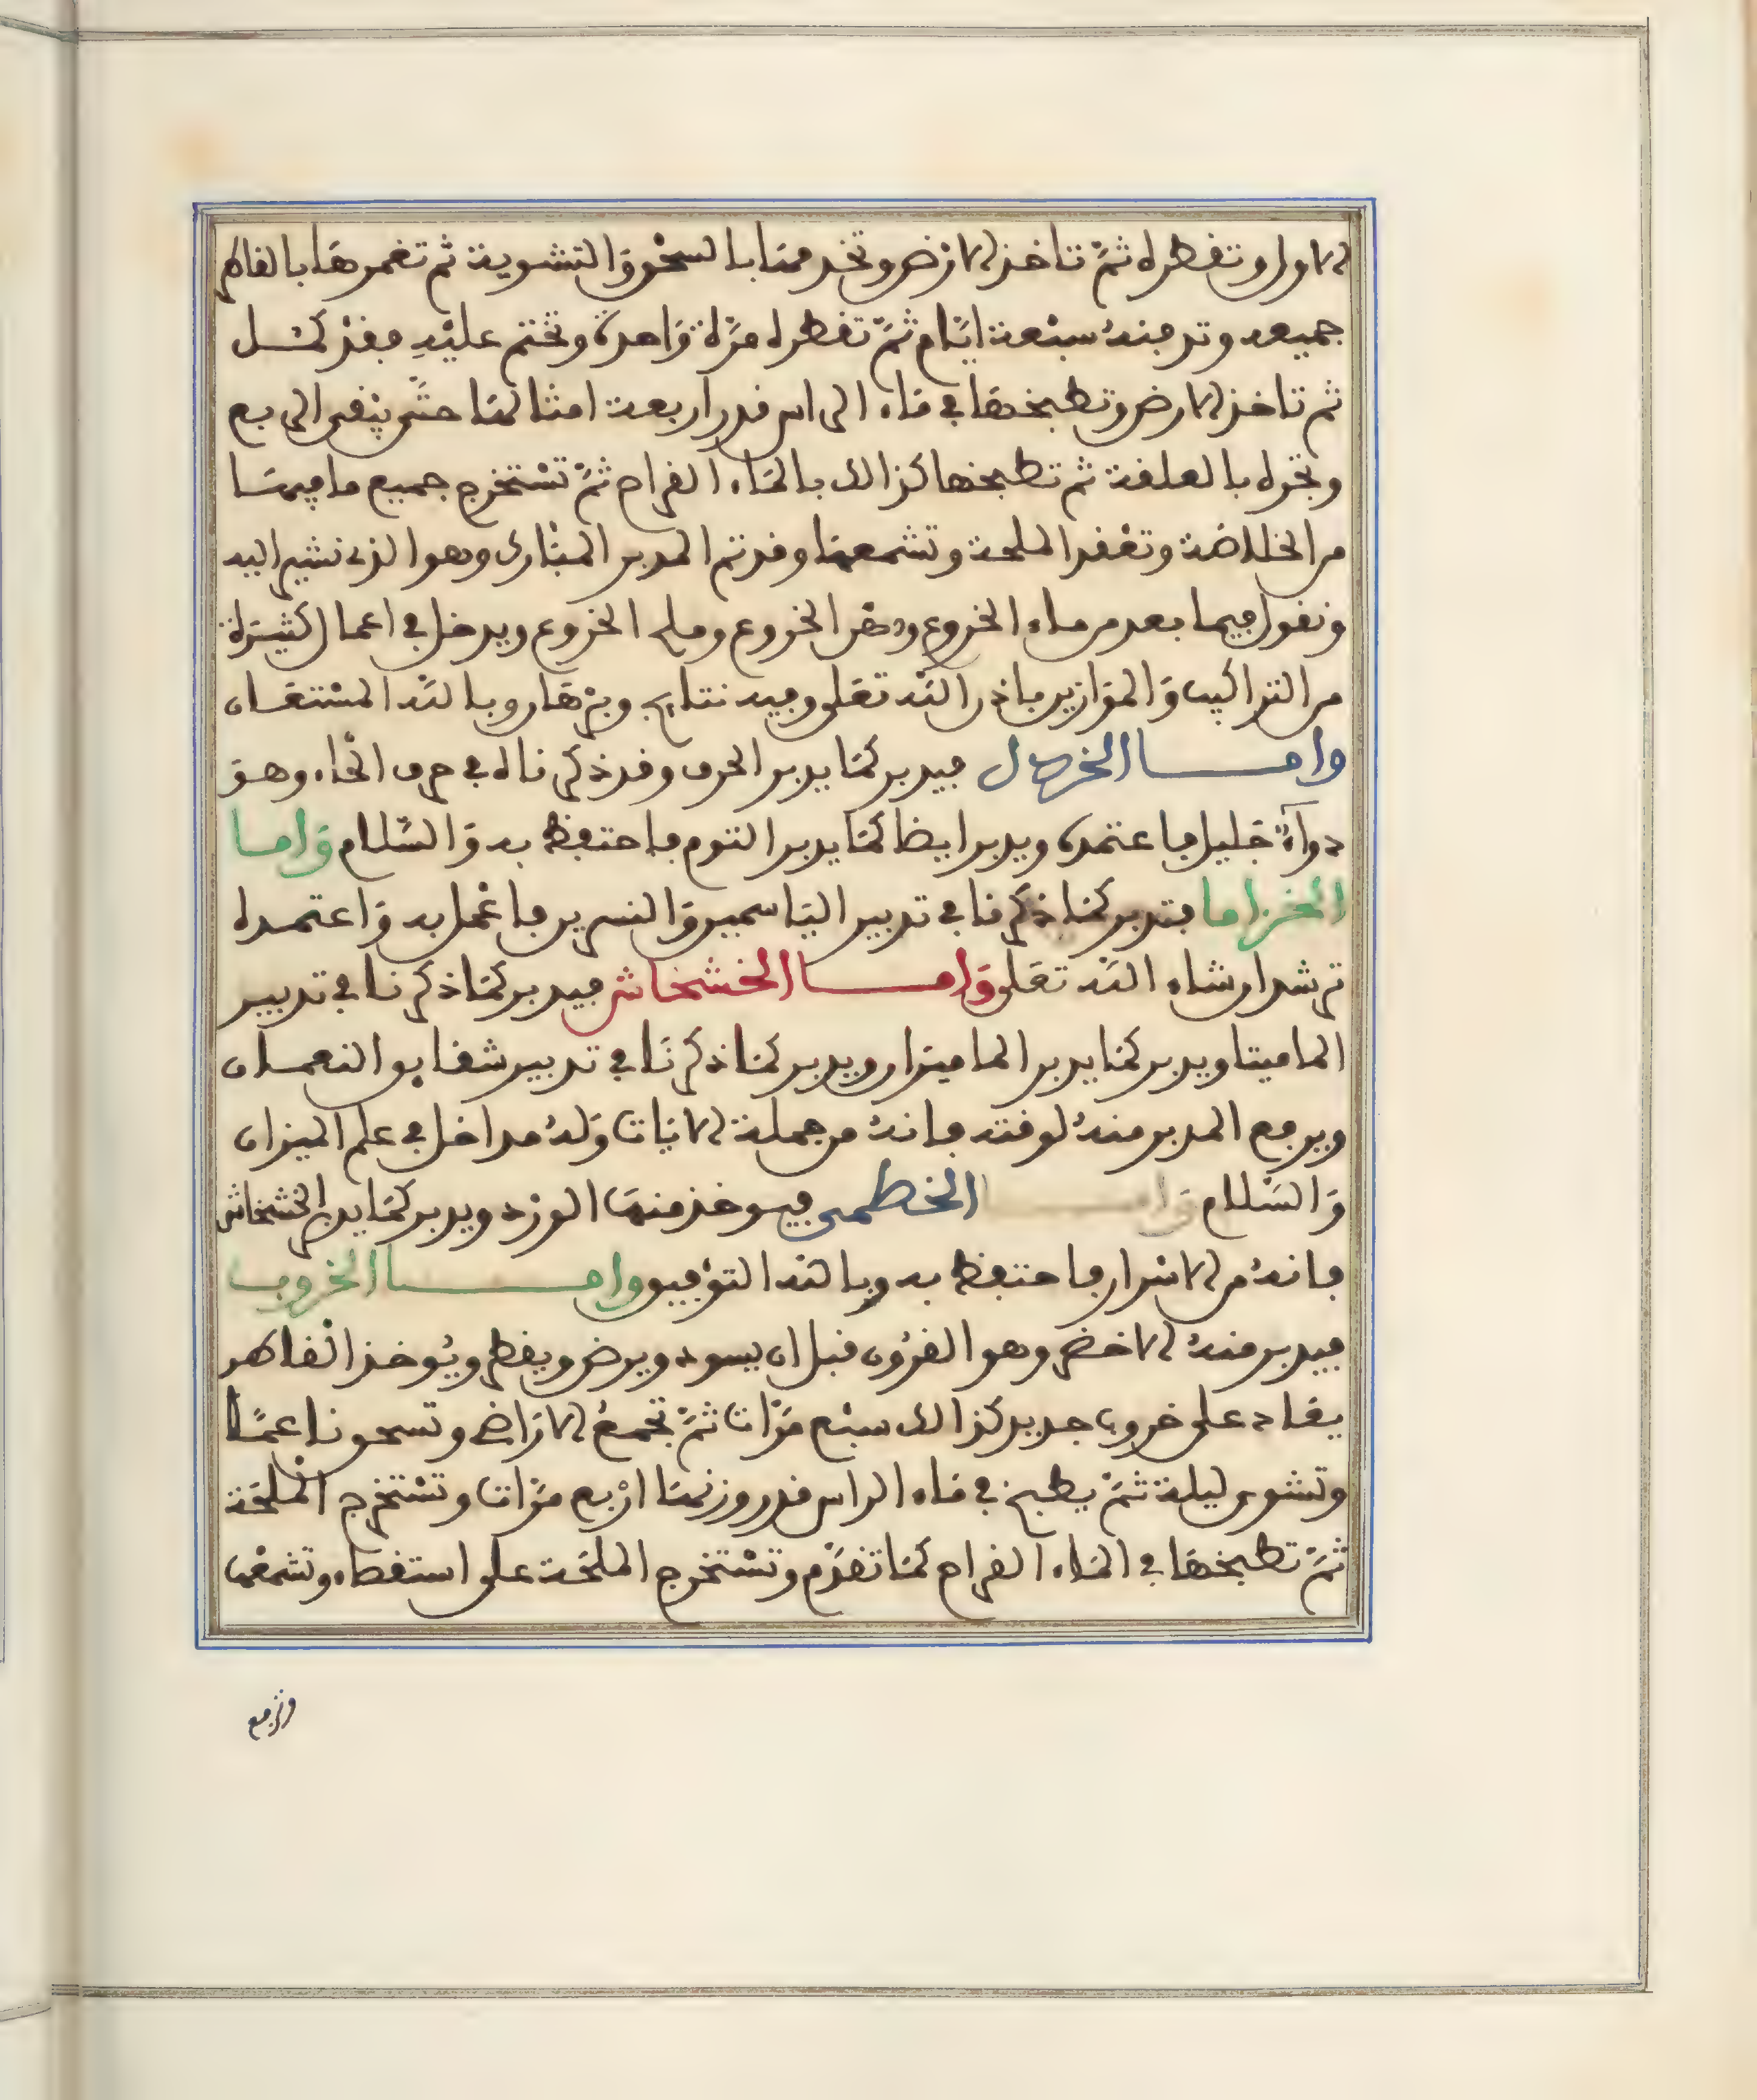 الاول وتقطره ثمّ تاخذ الارض وتخدمها بالسحق والتشوية ثم تغمرها بالقاطر
جميعه وتدفنه سبعة ايّام ثمّ تقطره مرّة واحدة وتختم عليه فقد كمل
ثم تاخذ الارض وتطبخها في ماء الراس قدر اربعة امثالها حتّى يبقى الربع
وتحركه بالعلقة ثم تطبخها كذالك بالماء القراح ثمّ تستخرج جميع ما فيها
من الخلاصة وتعقد الملحة وتشمعها وقد تم المدبر المبارك وهو الذي نشير اليه
ونقول فيما بعد من ماء الخروع ودهن الخروع وملح الخروع ويدخل في اعمال كثيرة
من التراكيب والموازين باذن الله تعلى وفيه نتايج وبرهان وبالله المستعان
وامـــا الخردل فيدبر كما يدبر الحرف وقد ذكرناه في حرف الحاء وهو
دواء جليل فاعتمده ويدبر ايضا كما يدبر الثوم فاحتفظ به والسّلام واما
الخزاما فتدبر كما ذكرنا في تدبير الياسمين والنسرين فاعمل به واعتمده
ترشد ان شاء الله تعلى وامـــا الخشخاش فيدبر كما ذكرنا في تدبير
الماميثا ويدبر كما يدبر الماميران ويدبر كما ذكرنا في تدبير شقايق النعمان
ويرفع المدبر منه لوقته فانه من جملة الايات وله مداخل في علم الميزان
والسّلام وامـــا الخطمى فيوخذ منها الورد ويدبر كما يدبر الخشخاش
فانه من الاسرار فاحتفظ به وبالله التوفيق وامـــا الخروب
فيدبر منه الاخضر وهو القرون قبل ان يسود ويرض ويقطر ويوخذ القاطر
يعاد على خروب جديد كذالك سبع مرّات ثمّ تجمع الاراضي وتسحق ناعما
وتشوى ليلة ثمّ يطبخ في ماء الراس قدر وزنها اربع مرّات وتستخرج الملحة
ثمّ تطبخها في الماء القراح كما تقدّم وتستخرج الملحة على استقصاء وتشمعها
وترفع